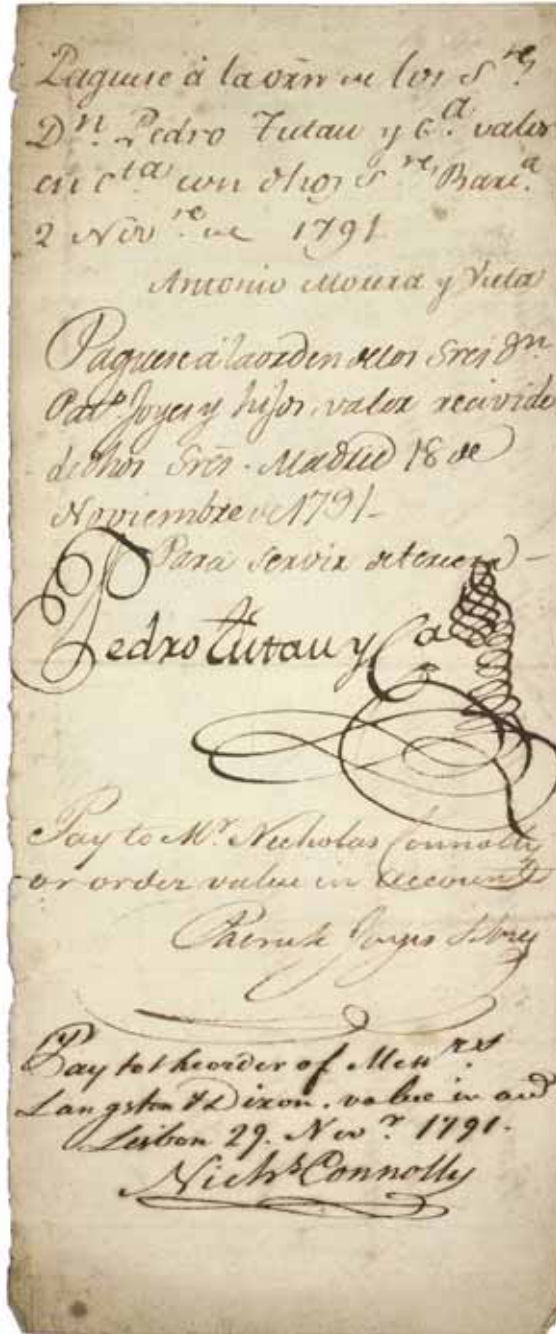 Paguese á la orn de los S.res
D.n Pedro Tutau y C.a valor
en c.ta con dhos S.res Barc.a
2 Nov.re de 1791
Antonio Moura y
Paguese á la orden de los Sres Dn
Pat.o Joyes y hijos, valor recivido
de dhos Srēs. Madrid 18 de
Noviembre de 1791-
Para servir de tercera-
Pedro Tutau y Ca
Pay to Mr. Nicholas Connolly
or order value in account
Patrick Joyes & Sons
Pay to the order of Mess.rs
Langston & Dixon. value in acct
Lisbon 29. Nov.r 1791.
Nich.s Connolly